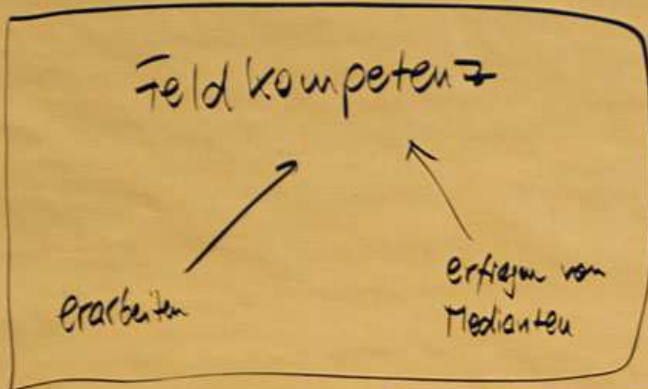 Feldkompetenz
erarbeiten
erfragen von
Medianten